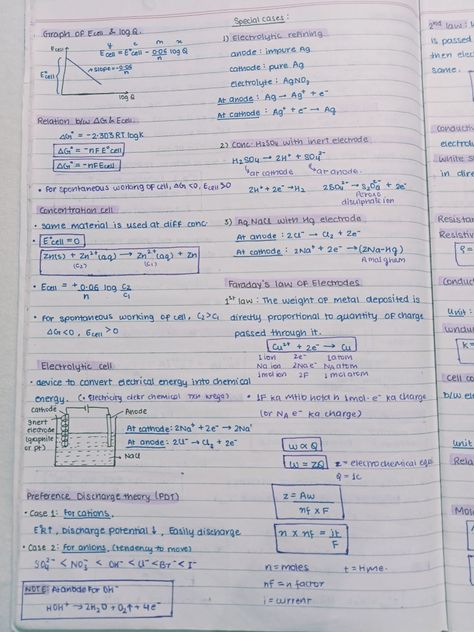 Graph of Ecell & log Q.
y c m x
Ecell = E°cell − 0.06/n log Q
Ecell
E°cell
slope = -0.06/n
log Q
Relation b/w ΔG & Ecell.
ΔG° = -2.303RT logk
ΔG° = -nFE°cell
ΔG = -nFEcell
• For spontaneous working of cell, ΔG<0, Ecell>0
Concentration cell
• same material is used at diff conc.
• E°cell = 0
Zn(s) + Zn²⁺(aq) → Zn²⁺(aq) + Zn
(C₂) (C₁)
• Ecell = +0.06/n log C₂/C₁
• For spontaneous working of cell, C₂>C₁
ΔG<0, Ecell>0
Electrolytic cell
• device to convert electrical energy into chemical
energy. (• Electricity dekr chemical rxn krega)
cathode
Anode
Inert
electrode
(graphite
or pt)
NaCl
At cathode: 2Na⁺ + 2e⁻ → 2Na
At anode: 2Cl⁻ → Cl₂ + 2e⁻
Preference Discharge theory (PDT)
• Case 1: For cations,
E°R↑, Discharge potential ↓, Easily discharge
• Case 2: For anions, (tendency to move)
SO₄²⁻ < NO₃⁻ < OH⁻ < Cl⁻ < Br⁻ < I⁻
NOTE: At anode For OH⁻
4OH⁻ → 2H₂O + O₂↑ + 4e⁻
Special cases:
1) Electrolytic refining
anode: impure Ag
cathode: pure Ag
electrolyte: AgNO₃
At anode: Ag → Ag⁺ + e⁻
At cathode: Ag⁺ + e⁻ → Ag
2) Conc. H₂SO₄ with inert electrode
H₂SO₄ → 2H⁺ + SO₄²⁻
at cathode at anode.
2H⁺ + 2e⁻ → H₂ 2SO₄²⁻ → S₂O₈²⁻ + 2e⁻
Peroxo
disulphate ion
3) Aq NaCl with Hg electrode
At anode: 2Cl⁻ → Cl₂ + 2e⁻
At cathode: 2Na⁺ + 2e⁻ → (2Na-Hg)
Amalgham
Faraday's law OF Electrodes
1st law: The weight OF metal deposited is
directly proportional to quantity OF charge
passed through it.
Cu²⁺ + 2e⁻ → Cu
1 ion 2e⁻ 1 atom
Na ion 2Na e⁻ Na atom
1 mol ion 2F 1 mol atom
• 1F ka mtlb hota h 1mol e⁻ ka charge
(or NA e⁻ ka charge)
w ∝ Q
w = zQ
z = electrochemical equi
Q = 1C
z = Aw / nf × F
n × nf = it/F
n = moles
t = time.
nf = n factor
i = current
2nd law:
is passed
then elec
same.
conducti
electrol
write s
in dire
Resistan
Resistiv
Conduct
unit:
condu
k =
cell co
b/w el
unit
Rela
Mola